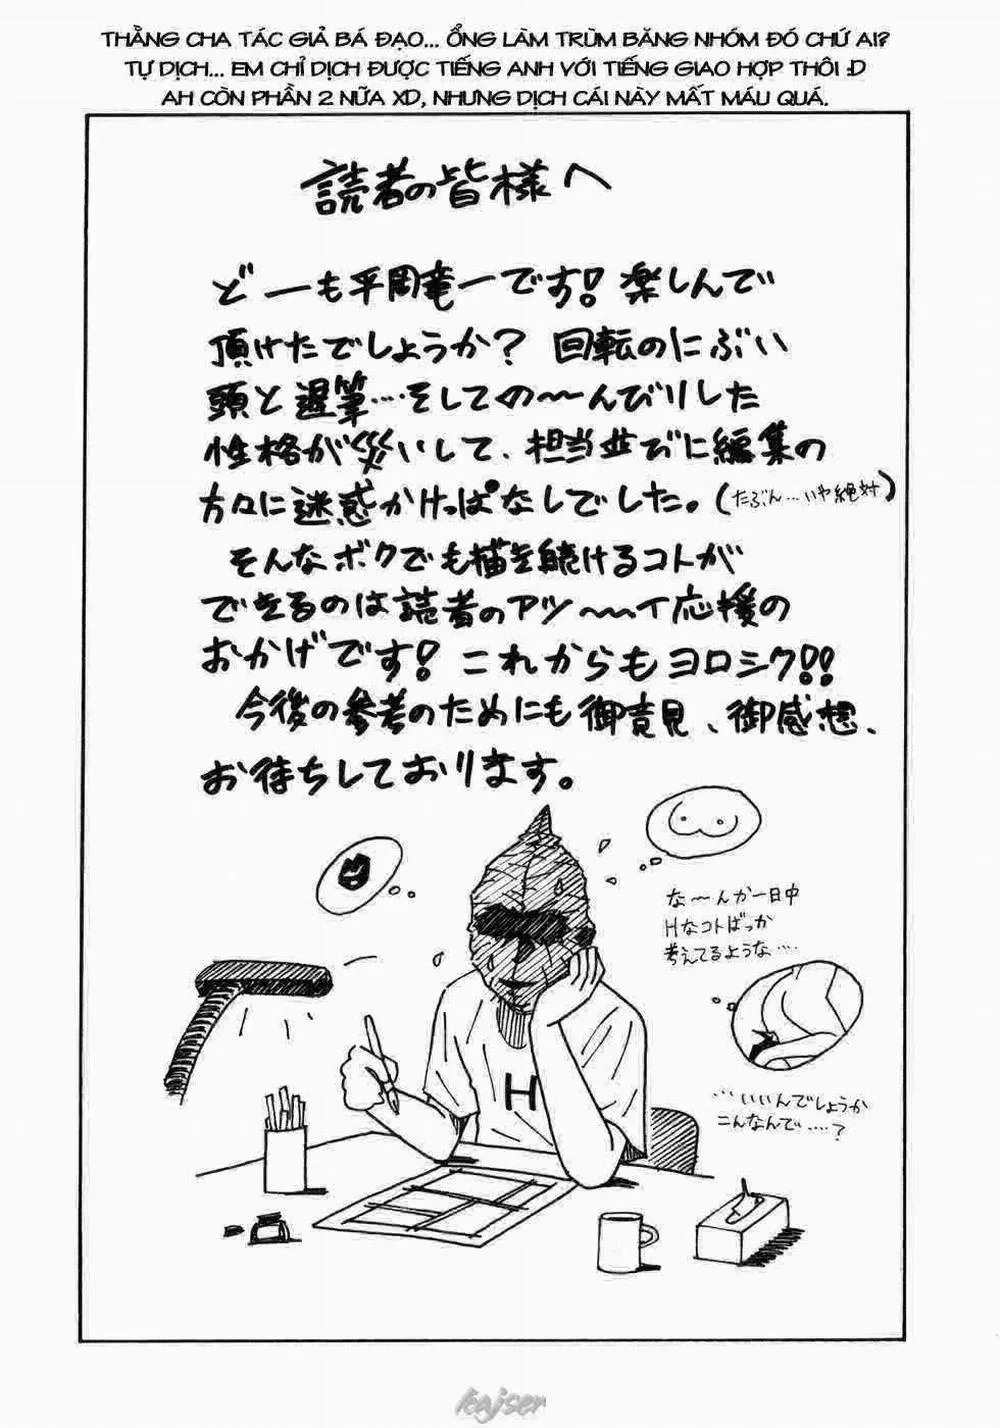 THẰNG CHA TÁC GIẢ BÁ ĐẠO... ỔNG LÀM TRÙM BĂNG NHÓM ĐÓ CHỨ AI?
TỰ DỊCH... EM CHỈ DỊCH ĐƯỢC TIẾNG ANH VỚI TIẾNG GIAO HỢP THÔI :D
AH CÒN PHẦN 2 NỮA XD, NHƯNG DỊCH CÁI NÀY MẤT MÁU QUÁ.
読者の皆様へ
ど一も平岡竜一です! 楽しんで
頂けたでしょうか? 回転のにぶい
頭と遅筆…そしての〜んびりした
性格が災いして、担当並びに編集の
方々に迷惑かけっぱなしでした。(たぶん…いや絶対)
そんなボクでも描き続けるコトが
できるのは読者のアツ〜〜イ応援の
おかげです! これからもヨロシク!!
今後の参考のためにも御意見、御感想、
お待ちしております。
な〜んか一日中
Hなコトばっか
考えてるような…
H
…いいんでしょうか
こんなんで……?
kajser